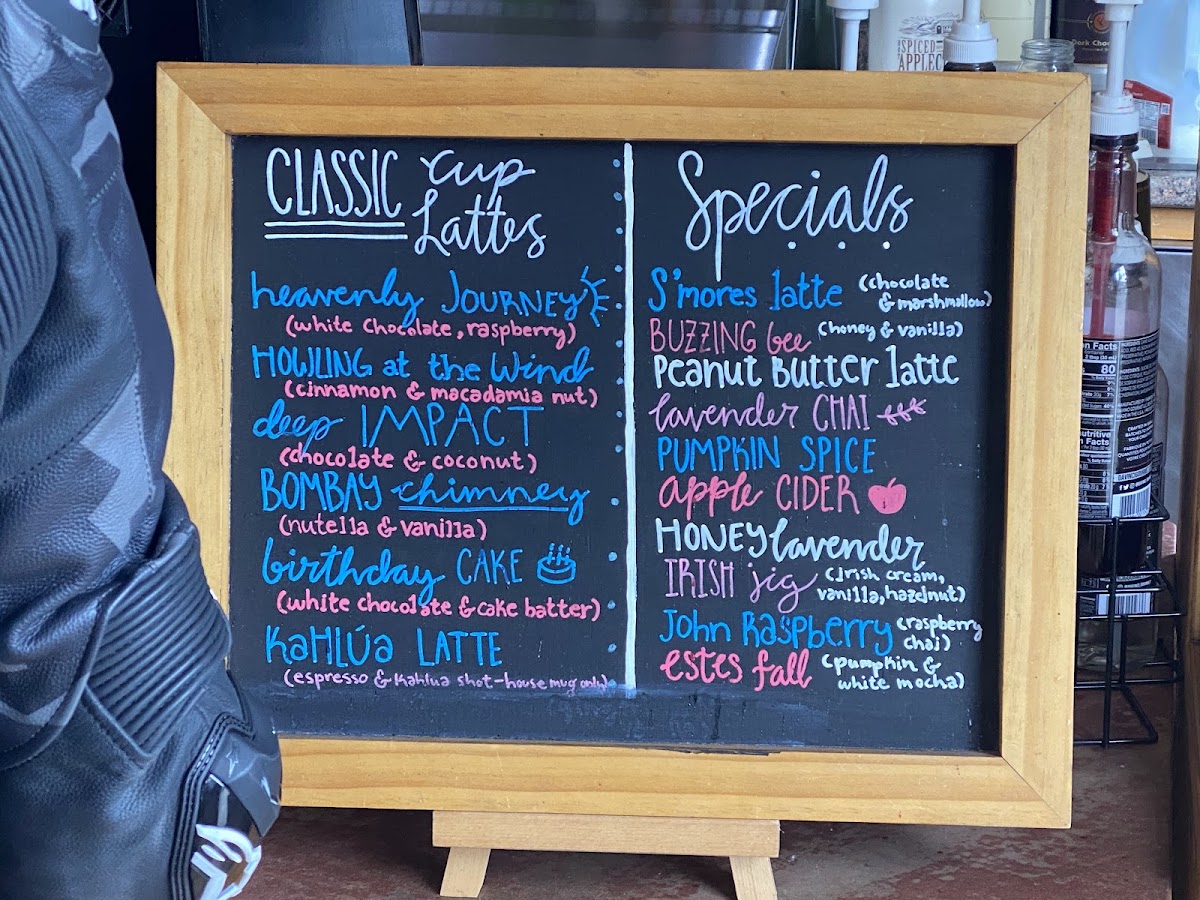 CLASSIC cup
Lattes
heavenly JOURNEY
(white chocolate, raspberry)
HOWLING at the Wind
(cinnamon & macadamia nut)
deep IMPACT
(chocolate & coconut)
BOMBAY chimney
(nutella & vanilla)
birthday CAKE
(white chocolate & cake batter)
KaHLÚa LATTE
(espresso & Kahlua shot-house mug only)
Specials
S'mores latte (chocolate
& marshmallow)
BUZZING bee (honey & vanilla)
Peanut Butter latte
lavender CHAI
PUMPKIN SPICE
apple CIDER
HONEY lavender
IRISH jig (Irish cream,
vanilla, hazelnut)
John Raspberry (raspberry
chai)
estes fall (pumpkin &
white mocha)
SPICED
Dark Cho
80